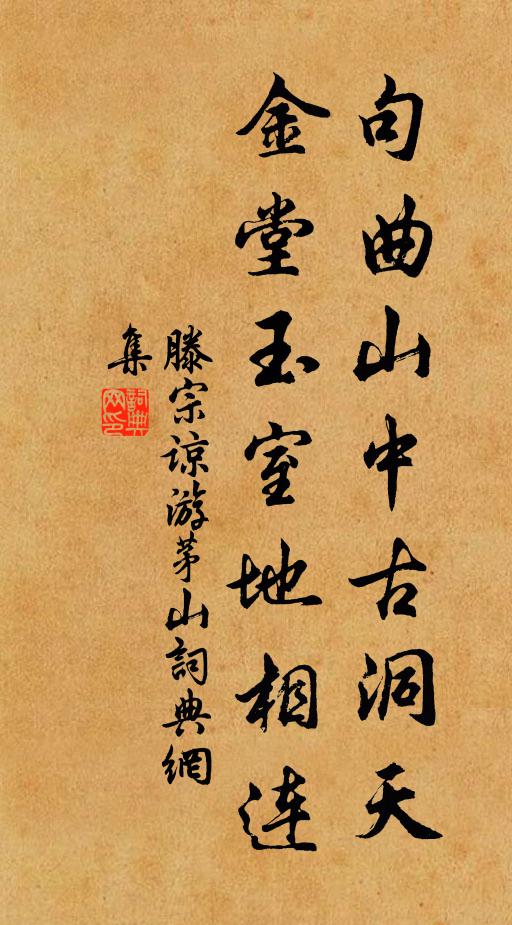 句曲山中古洞天
金堂玉室地相连
滕宗谅游茅山詞典網
集
詞典
网印